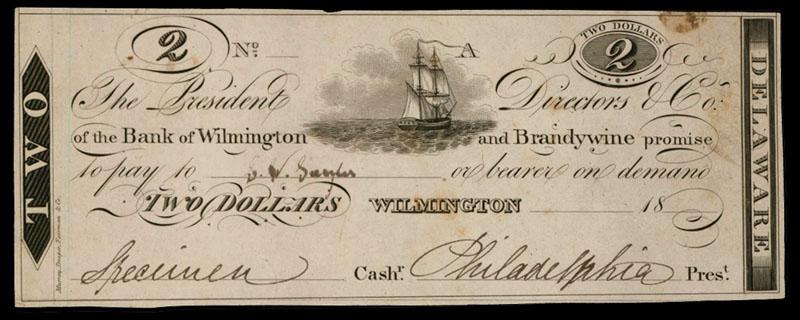 2 No. A TWO DOLLARS 2
The President Directors & Co.
of the Bank of Wilmington and Brandywine promise
to pay to or bearer on demand
TWO DOLLARS WILMINGTON 18
Specimen Cashr. Philadelphia Prest.
TWO
DELAWARE
Murray, Draper, Fairman & Co.